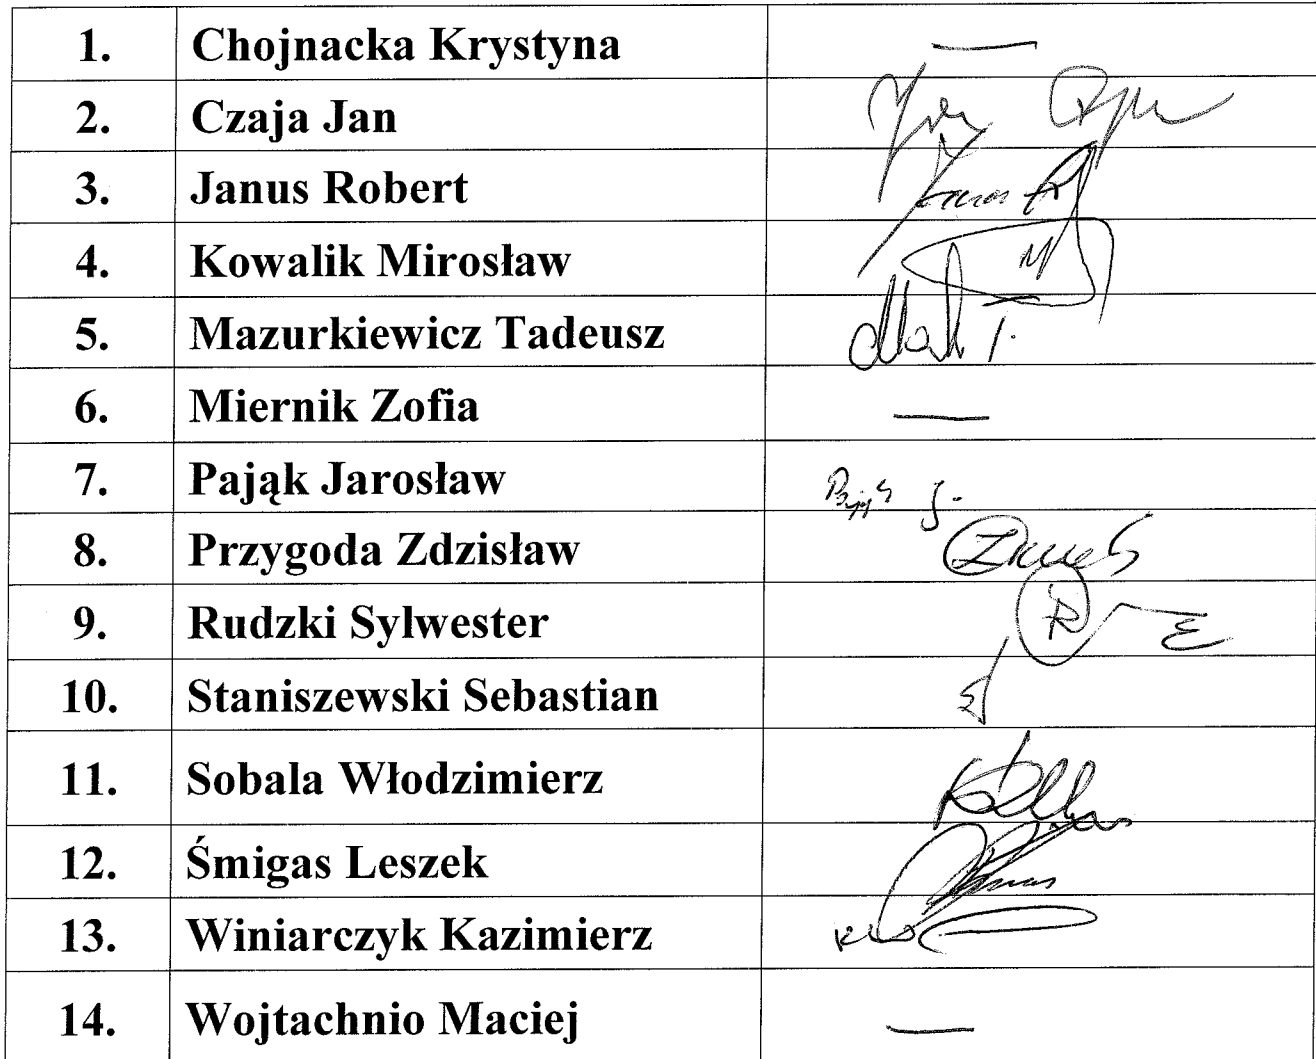 1. Chojnacka Krystyna —
2. Czaja Jan
3. Janus Robert
4. Kowalik Mirosław
5. Mazurkiewicz Tadeusz
6. Miernik Zofia —
7. Pająk Jarosław
8. Przygoda Zdzisław
9. Rudzki Sylwester
10. Staniszewski Sebastian
11. Sobala Włodzimierz
12. Śmigas Leszek
13. Winiarczyk Kazimierz
14. Wojtachnio Maciej —